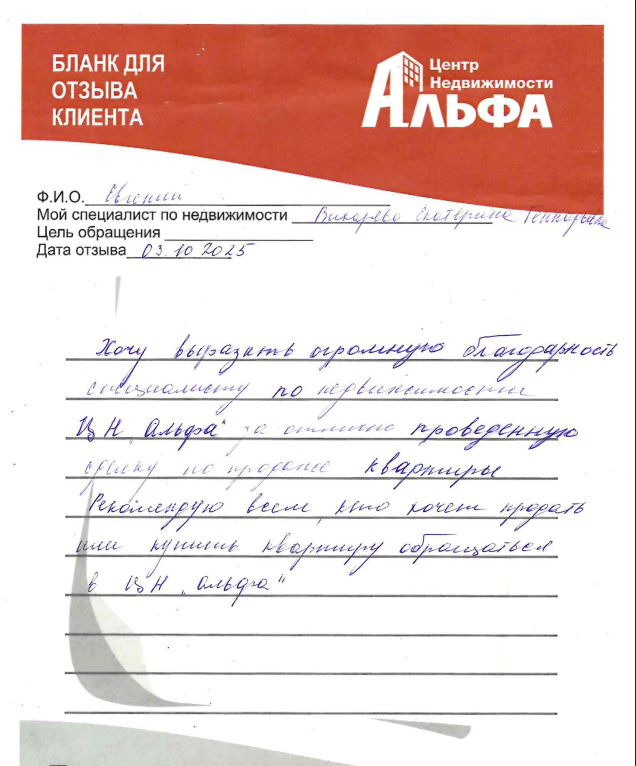 БЛАНК ДЛЯ
ОТЗЫВА
КЛИЕНТА
Центр
Недвижимости
АЛЬФА
Ф.И.О. Евгений
Мой специалист по недвижимости Екатерина Геннадьевна
Цель обращения
Дата отзыва 03.10 2025
Хочу выразить огромную благодарность
специалисту по недвижимости
ЦН „Альфа“ за отлично проведенную
сделку по продаже квартиры
Рекомендую всем, кто хочет продать
или купить квартиру обращаться
в ЦН „Альфа“